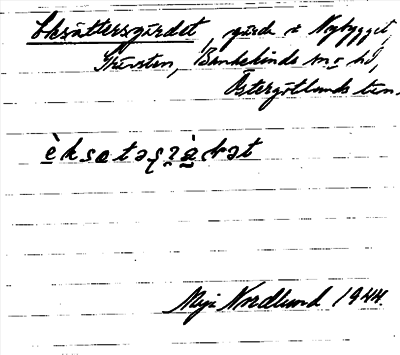 Eksättersgärdet, gärde i Nybygget,
Skärsten, Bankekinds sn o hd,
Östergötlands län.
èksatəṣɀà̤ḍət
Maja Nordlund 1944.